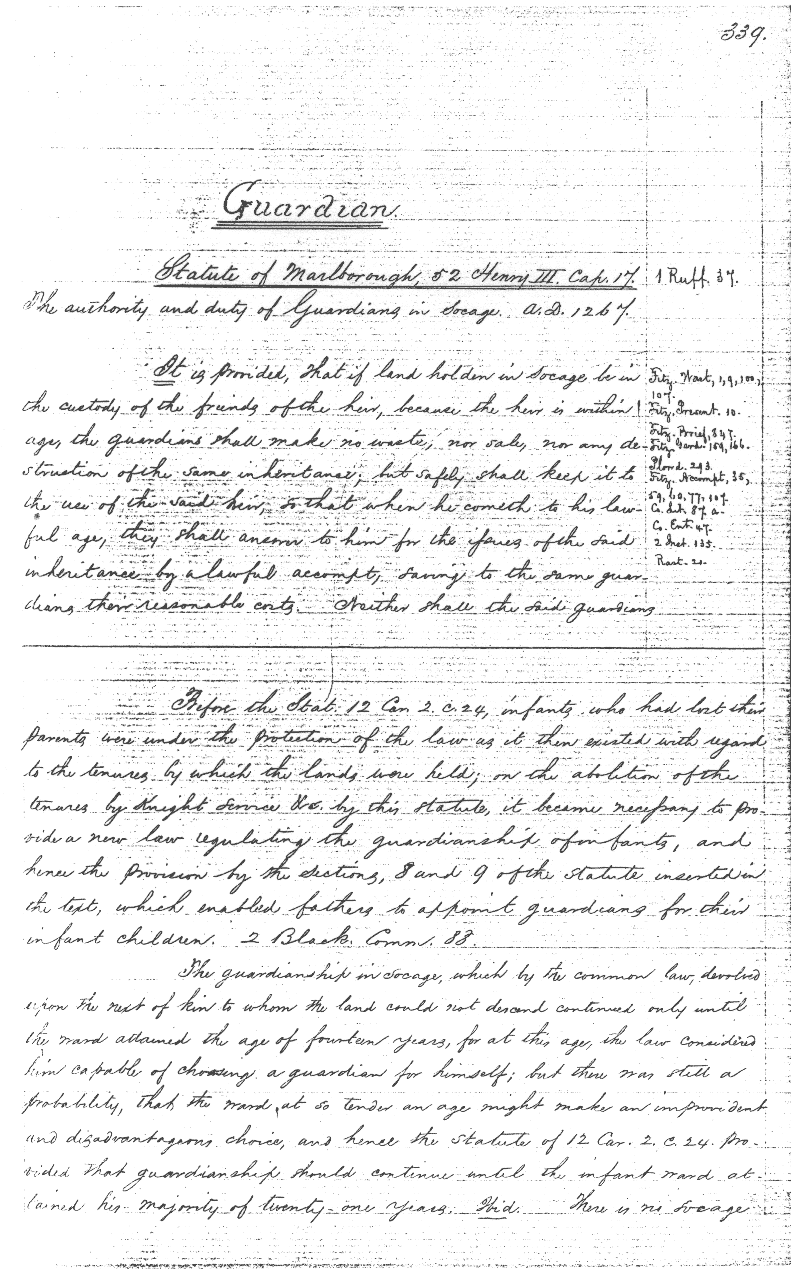 339.
Guardian.
Statute of Marlborough, 52 Henry III. Cap. 17.
1 Ruff. 37.
The authority and duty of Guardians in Socage. A.D. 1267.
It is provided, that if land holden in Socage be in
the custody of the friends of the heir, because the heir is within
age, the guardians shall make no waste, nor sale, nor any de-
struction of the same inheritance; but safely shall keep it to
the use of the said heir, so that when he cometh to his law-
ful age, they shall answer to him for the issues of the said
inheritance by a lawful accompt, saving to the same guar-
dians their reasonable costs. Neither shall the said guardians
Fitz. Wast, 1, 9, 100,
107.
Fitz. Present. 10.
Fitz. Brief, 847.
Fitz. Gard. 159, 166.
Plowd. 293.
Fitz. Accompt, 35,
59, 60, 77, 107.
Co. Lit. 87. a.
Co. Ent. 47.
2 Inst. 135.
Rast. 20.
Before the Stat. 12 Car. 2. c. 24, infants who had lost their
parents were under the protection of the law as it then existed with regard
to the tenures by which the lands were held; on the abolition of the
tenures by Knight Service &c. by this statute, it became necessary to pro-
vide a new law regulating the guardianship of infants, and
hence the provision by the sections, 8 and 9 of the statute inserted in
the text, which enabled fathers to appoint guardians for their
infant children. 2 Black. Comm. 88.
The guardianship in socage, which by the common law, devolved
upon the next of kin to whom the land could not descend continued only until
the ward attained the age of fourteen years, for at this age, the law considered
him capable of choosing a guardian for himself; but there was still a
probability, that the ward, at so tender an age might make an improvident
and disadvantageous choice, and hence the Statute of 12 Car. 2. c. 24. pro-
vided that guardianship should continue until the infant ward at-
tained his majority of twenty-one years. Ibid. There is no socage